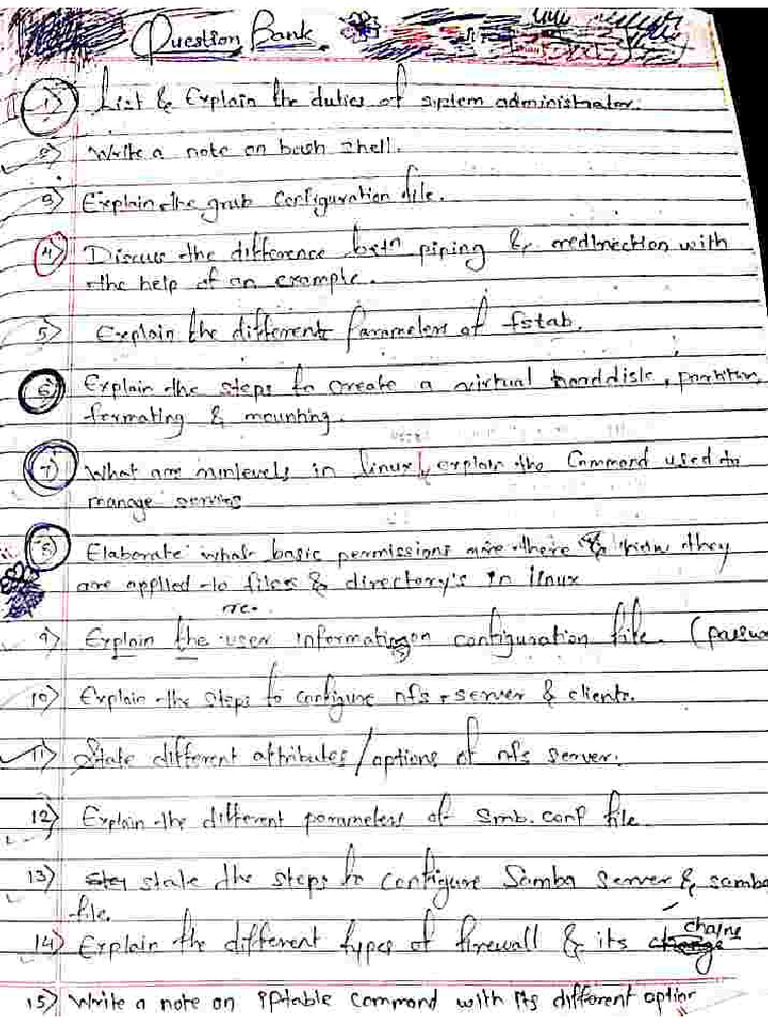 Question Bank
1) List & Explain the duties of system administrator.
2) Write a note on bash shell.
3) Explain the grub Configuration file.
4) Discuss the difference betn piping & redirection with
the help of an example.
5) Explain the different Parameters of fstab.
6) Explain the steps to create a virtual harddisk, partition,
formating & mounting.
7) What are runlevels in linux, explain the Command used to
manage services
8) Elaborate what basic permissions are there & how they
are applied to files & directory's in linux
9) Explain the user information configuration file.
10) Explain the steps to configure nfs server & clients.
11) State different attributes/options of nfs server.
12) Explain the different parameters of smb.conf file.
13) state the steps to configure Samba server & samba
file.
14) Explain the different types of firewall & its chains
15) Write a note on iptable command with its different option